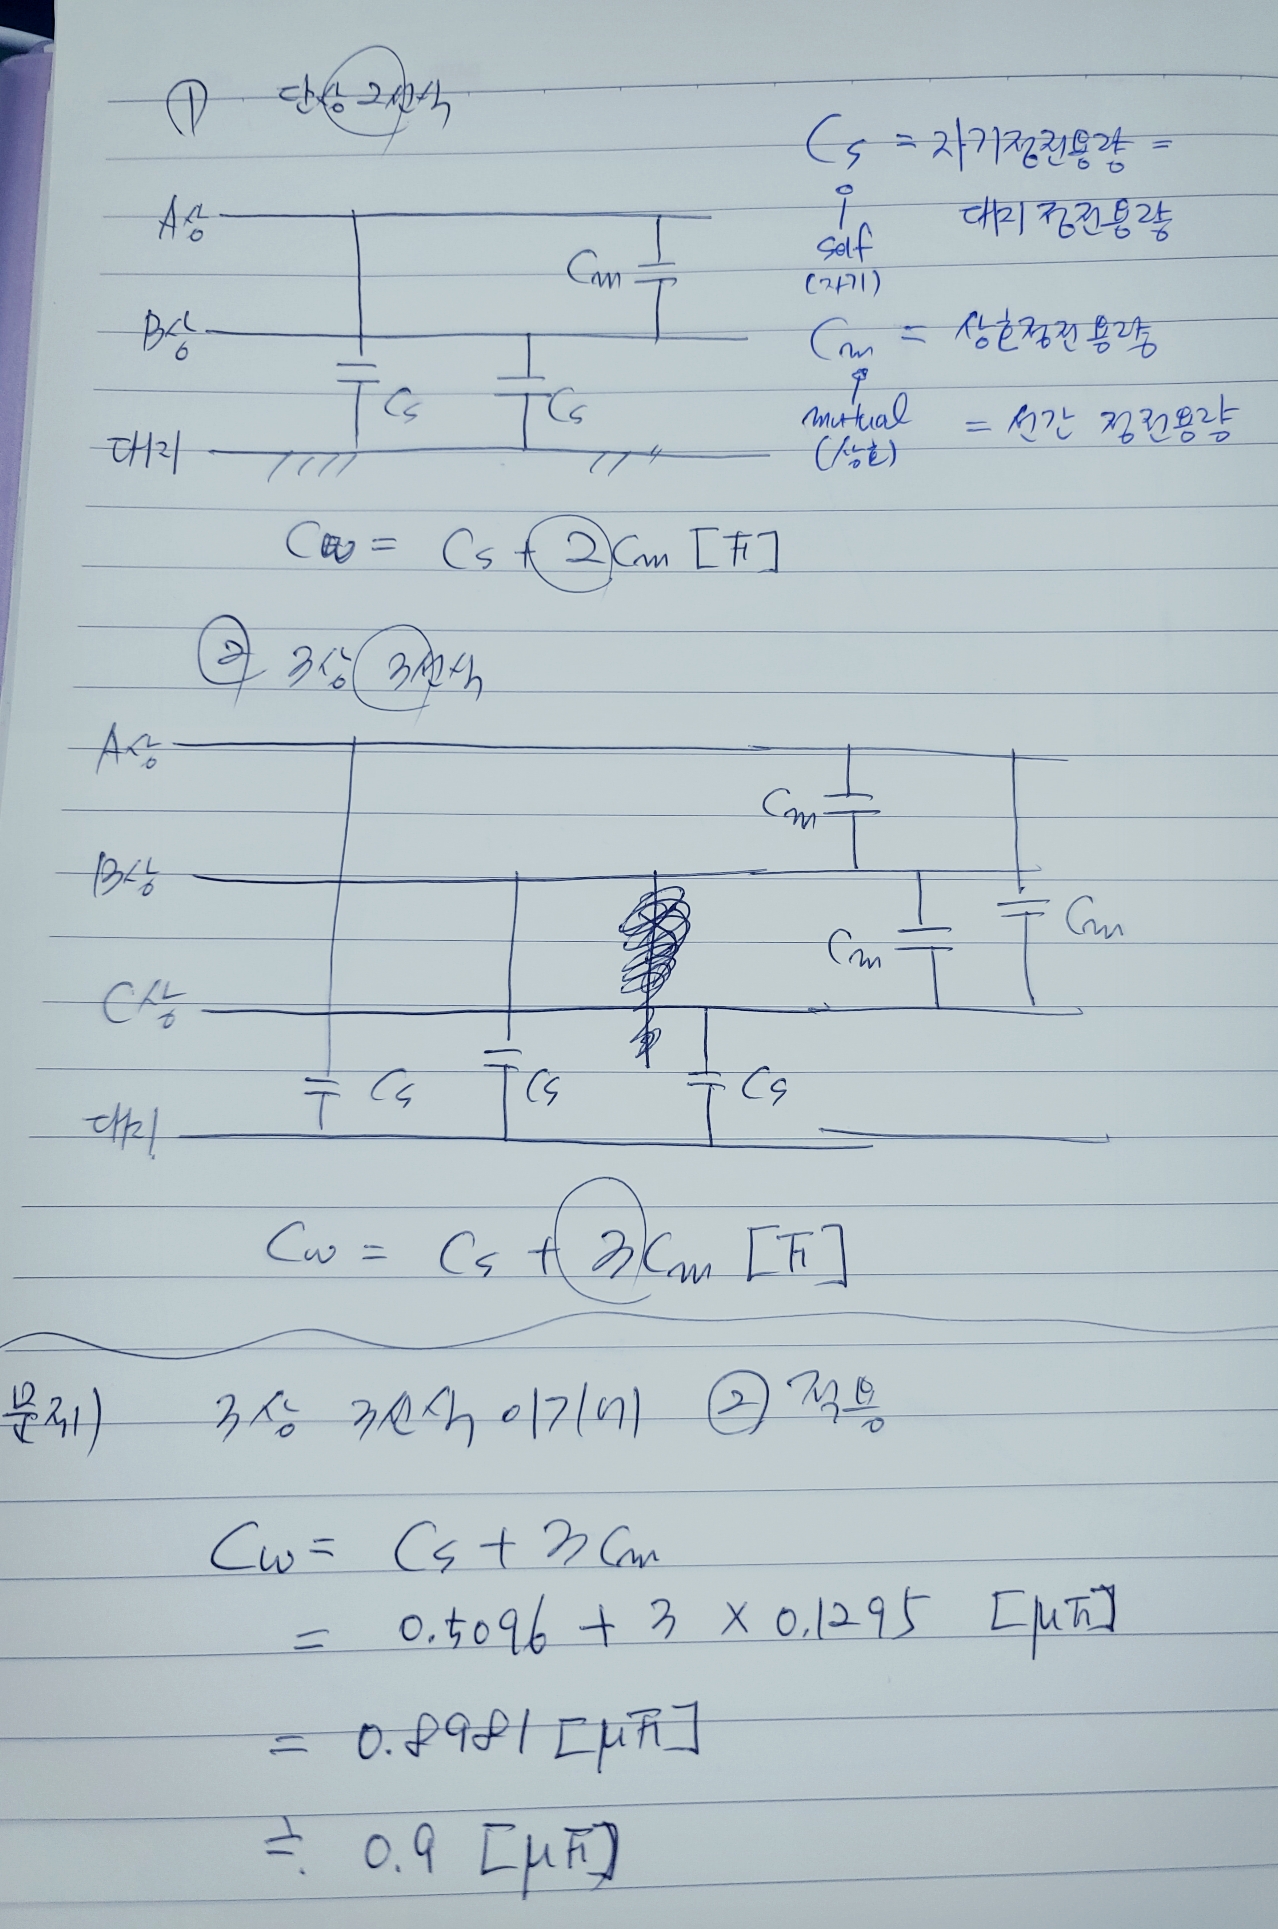 ① 단상 2선식
Cs = 자기정전용량 =
대지 정전용량
self
(자기)
A상
Cm
B상
Cm = 상호정전용량
mutual = 선간 정전용량
(상호)
Cs Cs
대지
Cw = Cs + 2Cm [F]
② 3상 3선식
A상
Cm
B상
Cm Cm
C상
Cs Cs Cs
대지
Cw = Cs + 3Cm [F]
문제) 3상 3선식 이기에 ② 적용
Cw = Cs + 3Cm
= 0.5096 + 3 × 0.1295 [μF]
= 0.8981 [μF]
≒ 0.9 [μF]